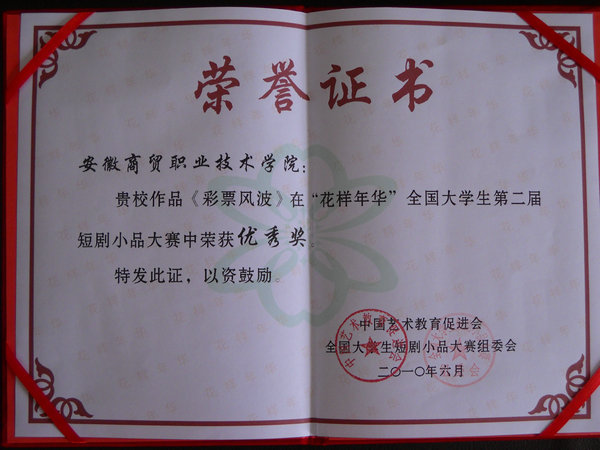 荣誉证书
安徽商贸职业技术学院：
贵校作品《彩票风波》在“花样年华”全国大学生第二届
短剧小品大赛中荣获优秀奖。
特发此证，以资鼓励。
中国艺术教育促进会
全国大学生短剧小品大赛组委会
二〇一〇年六月